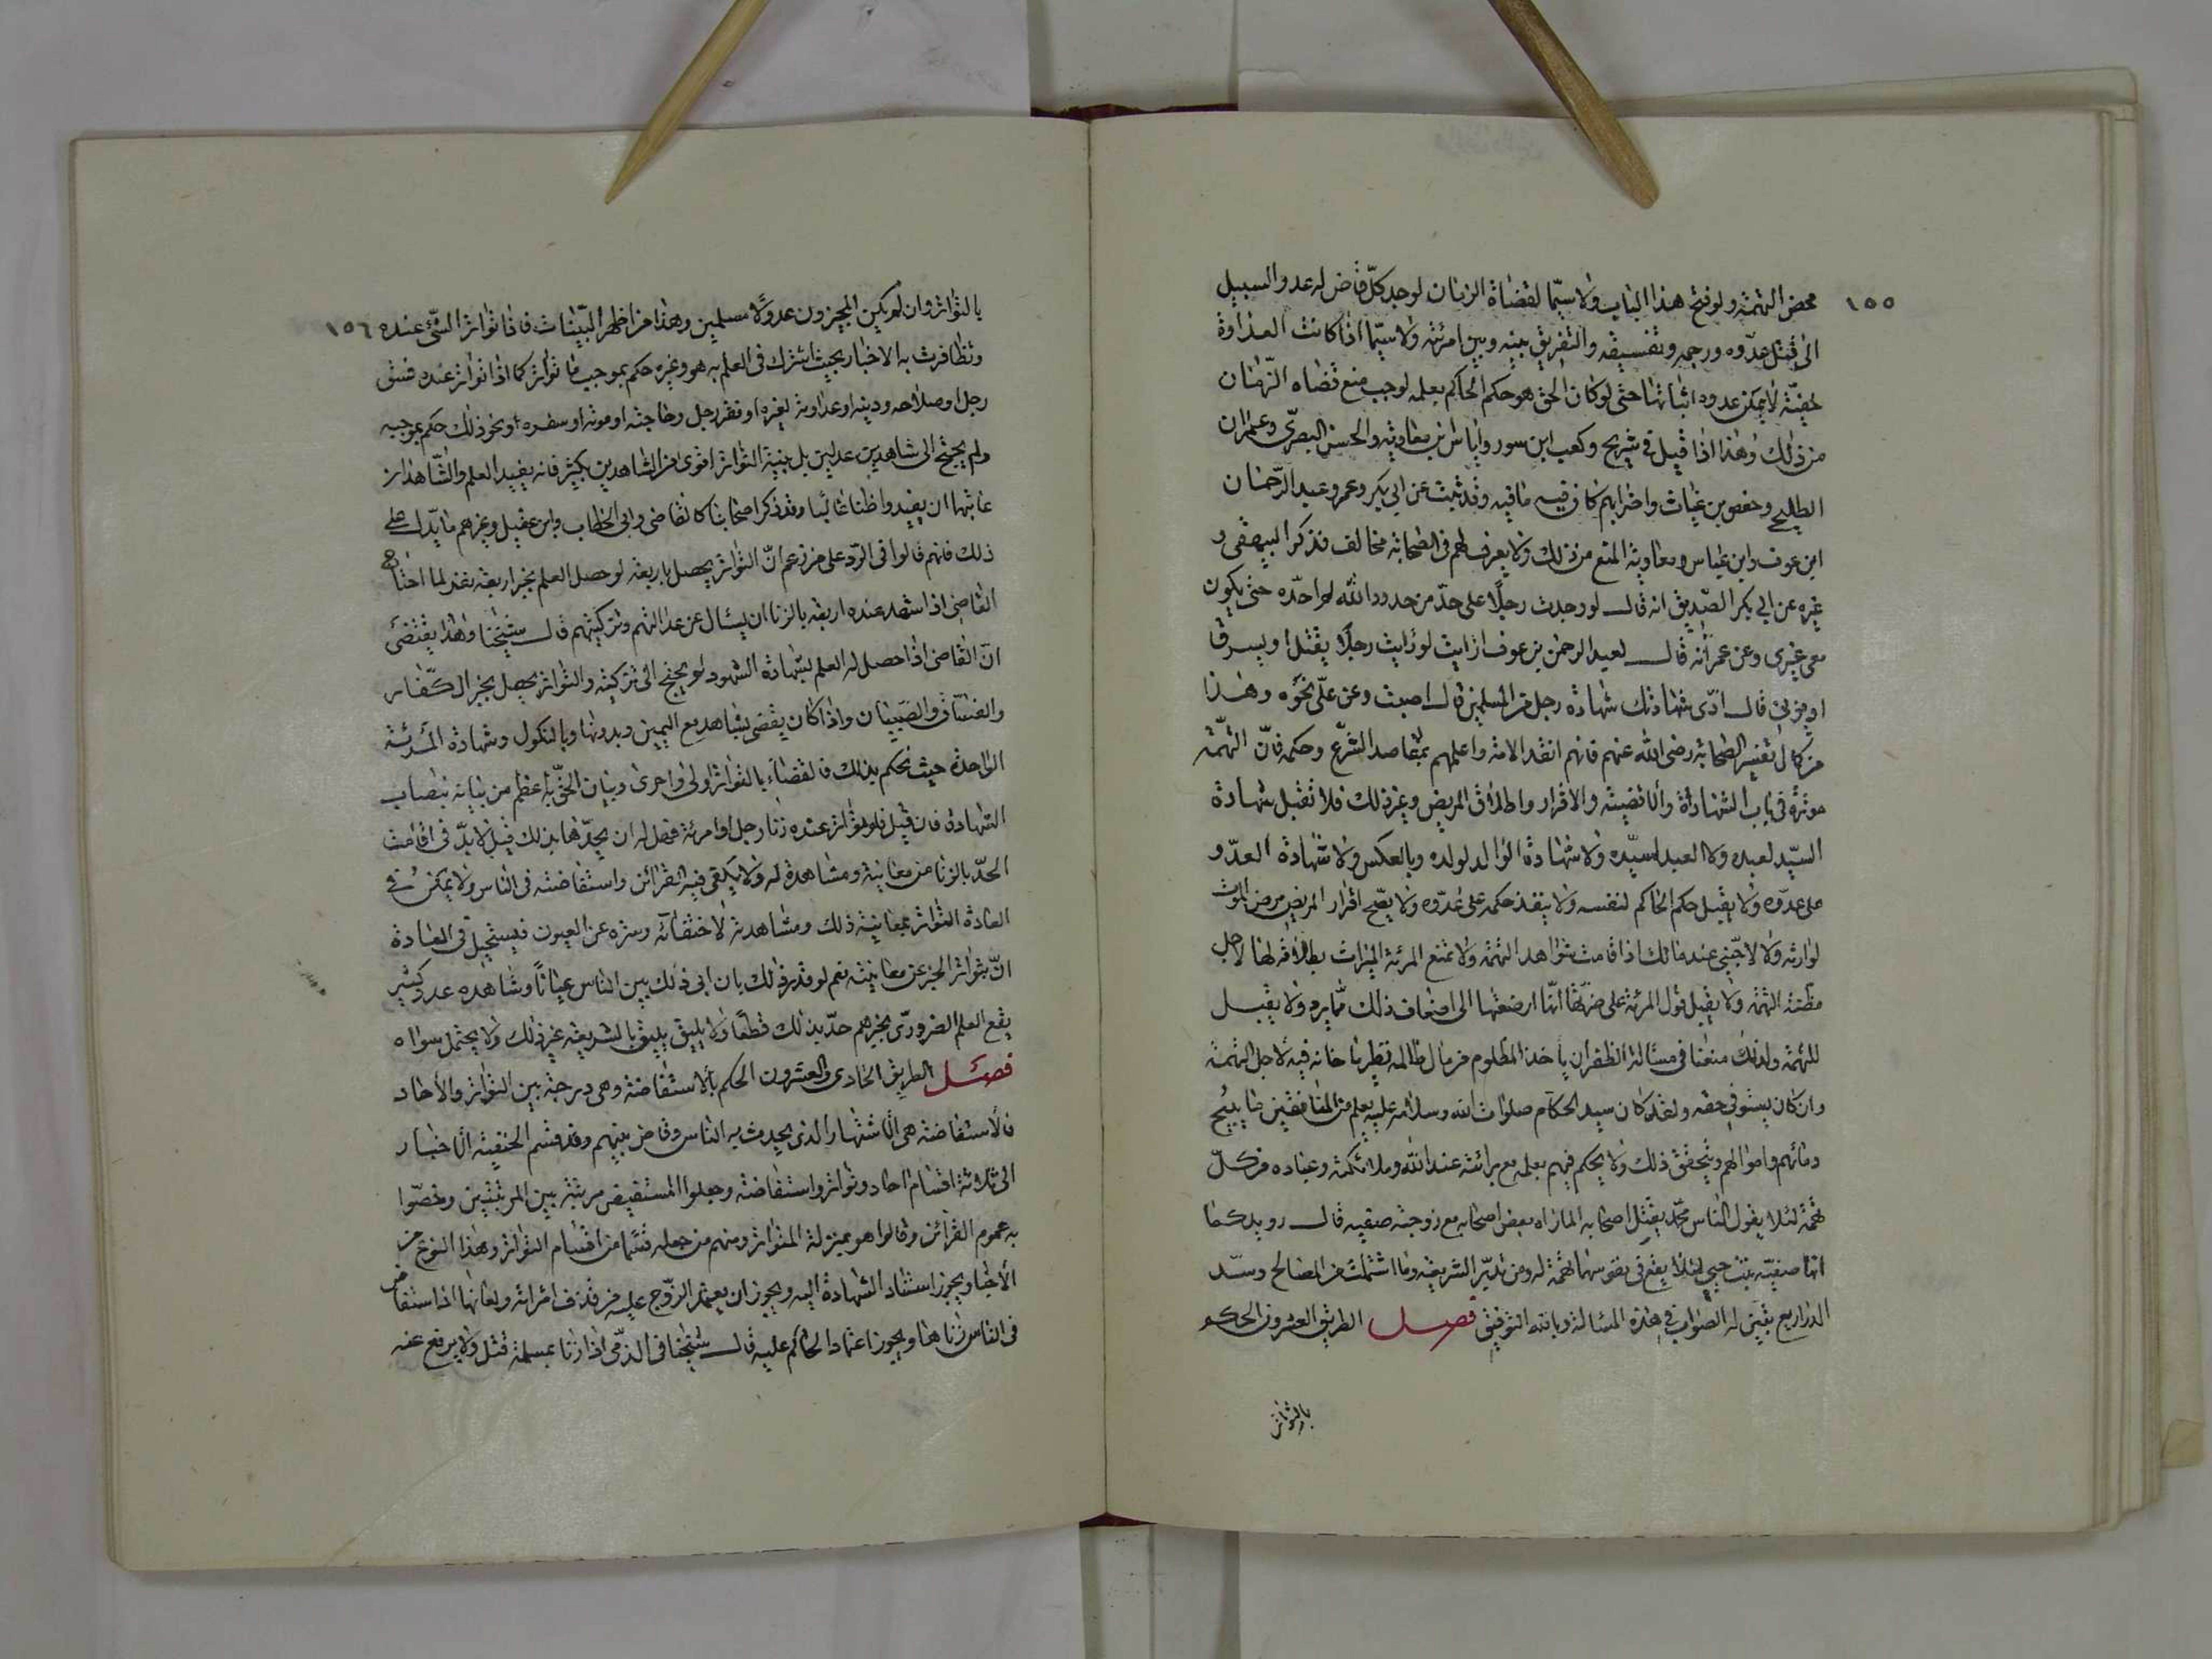 ١٥٥
محض التهمة ولو فتح هذا الباب ولا سيّما لقضاة الزمان لوجد كلّ قاض له عدو السبيل
الى قتل عدّوه ورجمه وتفسيقه والتفريق بينه وبين امرئته ولا سيّما اذا كانت العداوة
خفيّة لا يمكن عدوه اثباتها حتى لو كان الحق هو حكم الحاكم بعلمه لوجب منع قضاه الزّمان
من ذلك وهذا اذا قيل فى شريح وكعب ابن سور واياس بن معاوية والحسن البصرّي وعمران
الطليحى وحفص بن غياث واضرابهم كان فيه ما فيه وقد ثبت عن ابى بكر وعمر وعبد الرّحمان
ابن عوف وابن عباس ومعاوية المنع من ذلك ولا يعرف لهم فى الصّحابة مخالف فذكر البيهقى و
غيره عن ابى بكر الصّديق انه قال لو وجدت رجلًا على حدّ من حدود الله لم احدّه حتى يكون
معى غيرى وعن عمر انّه قال لعبد الرحمن بن عوف ارايت لو رايت رجلًا يقتل او يسرق
او يزنى قال ادّى شهادتك شهادة رجل من المسلمين قال اصبت وعن علّى نحوه وهذا
من كمال تفسير الصّحابة رضى الله عنهم فانهم افقه الامة واعلمهم بمقاصد الشرّع وحكمه فانّ التهمّة
موثرة فى باب الشهادة والاقضية والاقرار وطلاق المريض وغير ذلك فلا تقبل شهادة
السيّد لعبده ولا العبد لسيّده ولا شهادة الوالد لولده وبالعكس ولا شهادة العدّو
على عدّوه ولا يقبل حكم الحاكم لنفسه ولا ينفذ حكمه على عدّوه ولا يصّح اقرار المريض مرض الموت
لوارثه ولا لاجنّبى عند مالك اذا قامت شواهد التهمة ولا تمنع المرئة الميراث بطلاقه لها لاجل
مظّنة التهمة ولا يقبل قول المرئة على ضرّتها انّها ارضعتها الى اضعاف ذلك ممّا يرد ولا يقبل
للتهمة ولذلك منعنا فى مسالة الظفر ان ياخذ المظلوم من مال ظالمه نظير ما خانه فيه لاجل التهمة
وان كان يستوفى حقه ولقد كان سيد الحكام صلوات الله وسلامه عليه يعلم من المنافقين ما يبيح
دمائهم واموالهم ويتحقق ذلك ولا يحكم فيهم بعلمه مع برائته عند الله وملائكته وعباده من كلّ
تهمة لئلا يقول النّاس محمّد يقتل اصحابه لما راه بعض اصحابه مع زوجته صفيه قال رويدكما
انها صفيّه بنت حيى لئلا يقع فى نفوسهما تهمة له ومن تدبّر الشريعة وما اشتملت من المصالح وسدّ
الذرايع تبيّن له الصّواب فى هذه المسالة وبالله التوفيق فصل الطريق العشرون الحكم
بالتواتر
١٥٦
بالتواتر وان لم يكن المخبرون عدولًا مسلمين وهذا من اظهر البيّنات فاذا تواتر الشّئ عنده
وتظافرت به الاخبار بحيث اشترك فى العلم به هو وغيره حكم بموجب ما تواتر كما اذا تواتر عنده فسق
رجل او صلاحه ودينه او عداوته لغيره او فقر رجل وحاجته او موته او سفره او نحو ذلك حكم بموجبه
ولم يحتج الى شاهدين عدلين بل بينة التواتر اقوى من الشاهدين بكثير فانه يفيد العلم والشّاهدان
غايتهما ان يفيدوا ظنا غالبا وقد ذكر اصحابنا كالقاضى وابى الخطاب وابن عقيل وغيرهم ما يدّل على
ذلك فانهم قالوا فى الرّد على من زعم انّ التواتر يحصل باربعة لو حصل العلم بخبر اربعة نفر لما احتاج
القاضى اذا شهد عنده اربعة بالزنا ان يسئال عن عدالتهم وتزكيتهم قال شيخنا وهذا يقتضى
انّ القاضى اذا حصل له العلم بشهادة الشهود لم يحتج الى تزكية والتواتر يحصل بخبر الكفّار
والفسّاق والصّبيان واذا كان يقضى بشاهد مع اليمين وبدونها وبالنكول وشهادة المرئة
الواحدة حيث يحكم بذلك فالقضاء بالتواتر اولى واحرى وبيان الحقّ به اعظم من بيانه بنصاب
الشهادة فان قيل فلو تواتر عنده زنا رجل او امرئة فهل له ان يحدّهما بذلك قيل لا بدّ فى اقامت
الحدّ بالزنا من معاينة ومشاهدة له ولا يكفى فيه القرائن واستفاضته فى الناس ولا يمكن فى
العادة التواتر بمعاينة ذلك ومشاهدته لاختفائه وستره عن العيون فيستحيل فى العادة
انّ يتواتر الخبر عن معاينته نعم لو قدر ذلك بان اتى ذلك بين الناس عيانًا وشاهده عدد كثير
يقع العلم الضرورّى بخبرهم حدّ بذلك قطعًا ولا يليق يليق بالشريعة غير ذلك ولا يحتمل سواه
فصل الطريق الحادى والعشرون الحكم بالاستفاضة وهى درجة بين التواتر والأحاد
فالاستفاضة هى الاشتهار الذى يحدث به الناس وفاض بينهم وقد قسّم الحنفية الاخبار
الى ثلاثة اقسام احاد وتواتر واستفاضة وجعلوا المستفيض مرتبة بين المرتبتين وخصّوا
به عموم القرائن وقالوا هو بمنزلة المتواتر ومنهم من جعله قسما من اقسام التواتر وهذا النوع من
الأخبار يجوز استناد الشهادة اليه ويجوز ان يعتمد الزوّج عليه من قذف امرائه ولعانها اذا استفاض
فى الناس زناها ويجوز اعتماد الحاكم عليه قال شيخنا فى الذمّى اذا زنا بمسلمة قتل ولا يرفع عنه